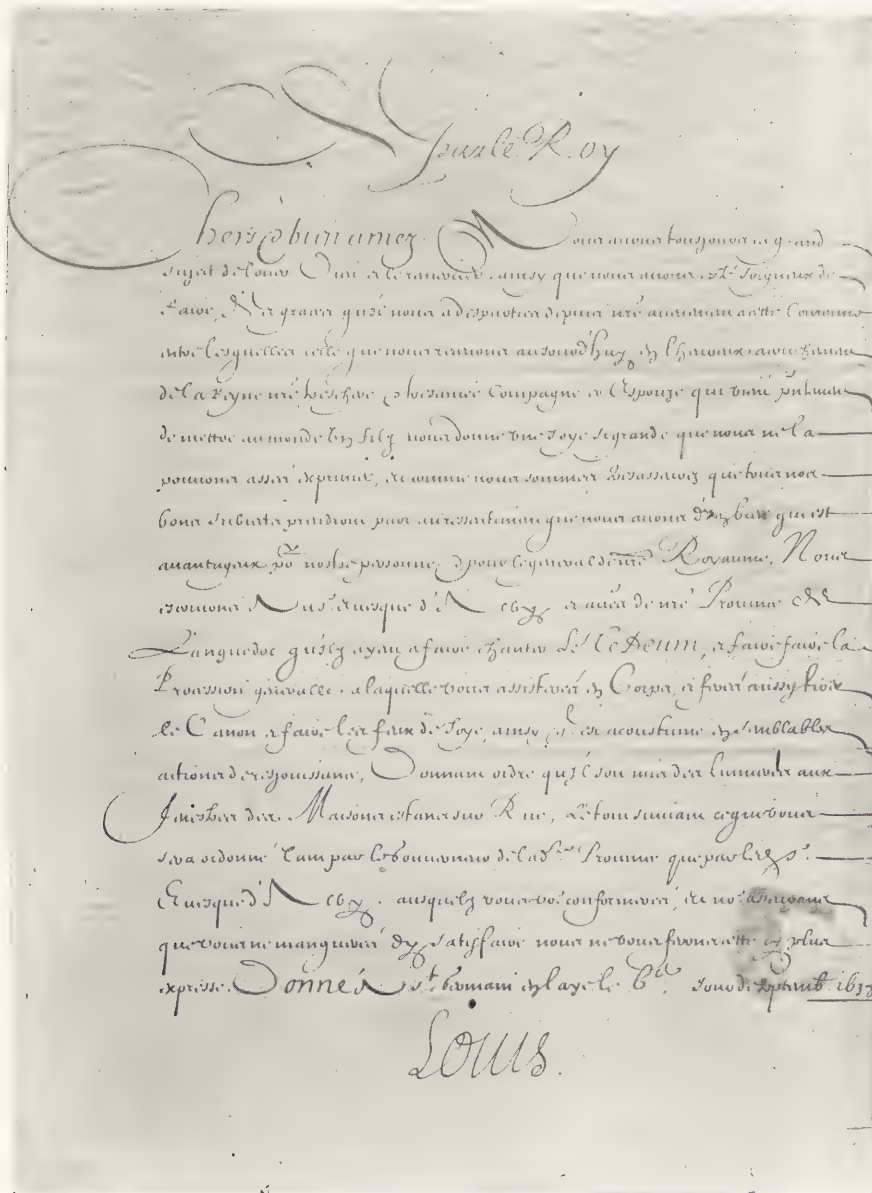 De par le Roy
Chers & bien amez. Nous auons tousjours eu grand
sujet de louer Dieu et le remercier, ainsy que nous auons esté soigneux de
faire, des graces qu'il nous a desparties depuis nr̃e auenement a cette Couronne
entre lesquelles celle que nous receuons aujourd'huy en l'heureux accouchement
de la Reyne nr̃e treschere & tresamée Compagne et Espouze qui vient pñtement
de mettre au monde vn filz nous donne vne joye si grande que nous ne la
pouuons assez exprimer, et comme nous sommes tresasseurez que tous nos
bons subiects prendront part au ressentiment que nous auons d'vn bien qui est
auantageux po.r nostre personne, & pour le general de nr̃e Royaume, Nous
escriuons Au s.r Euesque d'A et aux de nr̃e Prouince de
Languedoc qu'ilz ayent a faire chanter Le Te Deum, et faire faire la
Procession generalle, a laquelle vous assisterez en Corps, et ferez aussy tirer
le Canon et faire les feux de Joye, ainsy qu'il est acoustumé en semblables
actions de resjouissance, Donnant ordre qu'il soit mis des lumieres aux
fenestres des Maisons estans sur Rue, Le tout suiuant ce qui vous
sera ordonné tant par le Gouuerneur de lad. Prouince que par led. s.r
Euesque d'A ausquelz vous vo.s conformerez, et no.s asseurans
que vous ne manquerez d'y satisfaire nous ne vous ferons cette cy plus
expresse. Donné A S.t Germain en laye le jour de Septemb. 163
Louis.